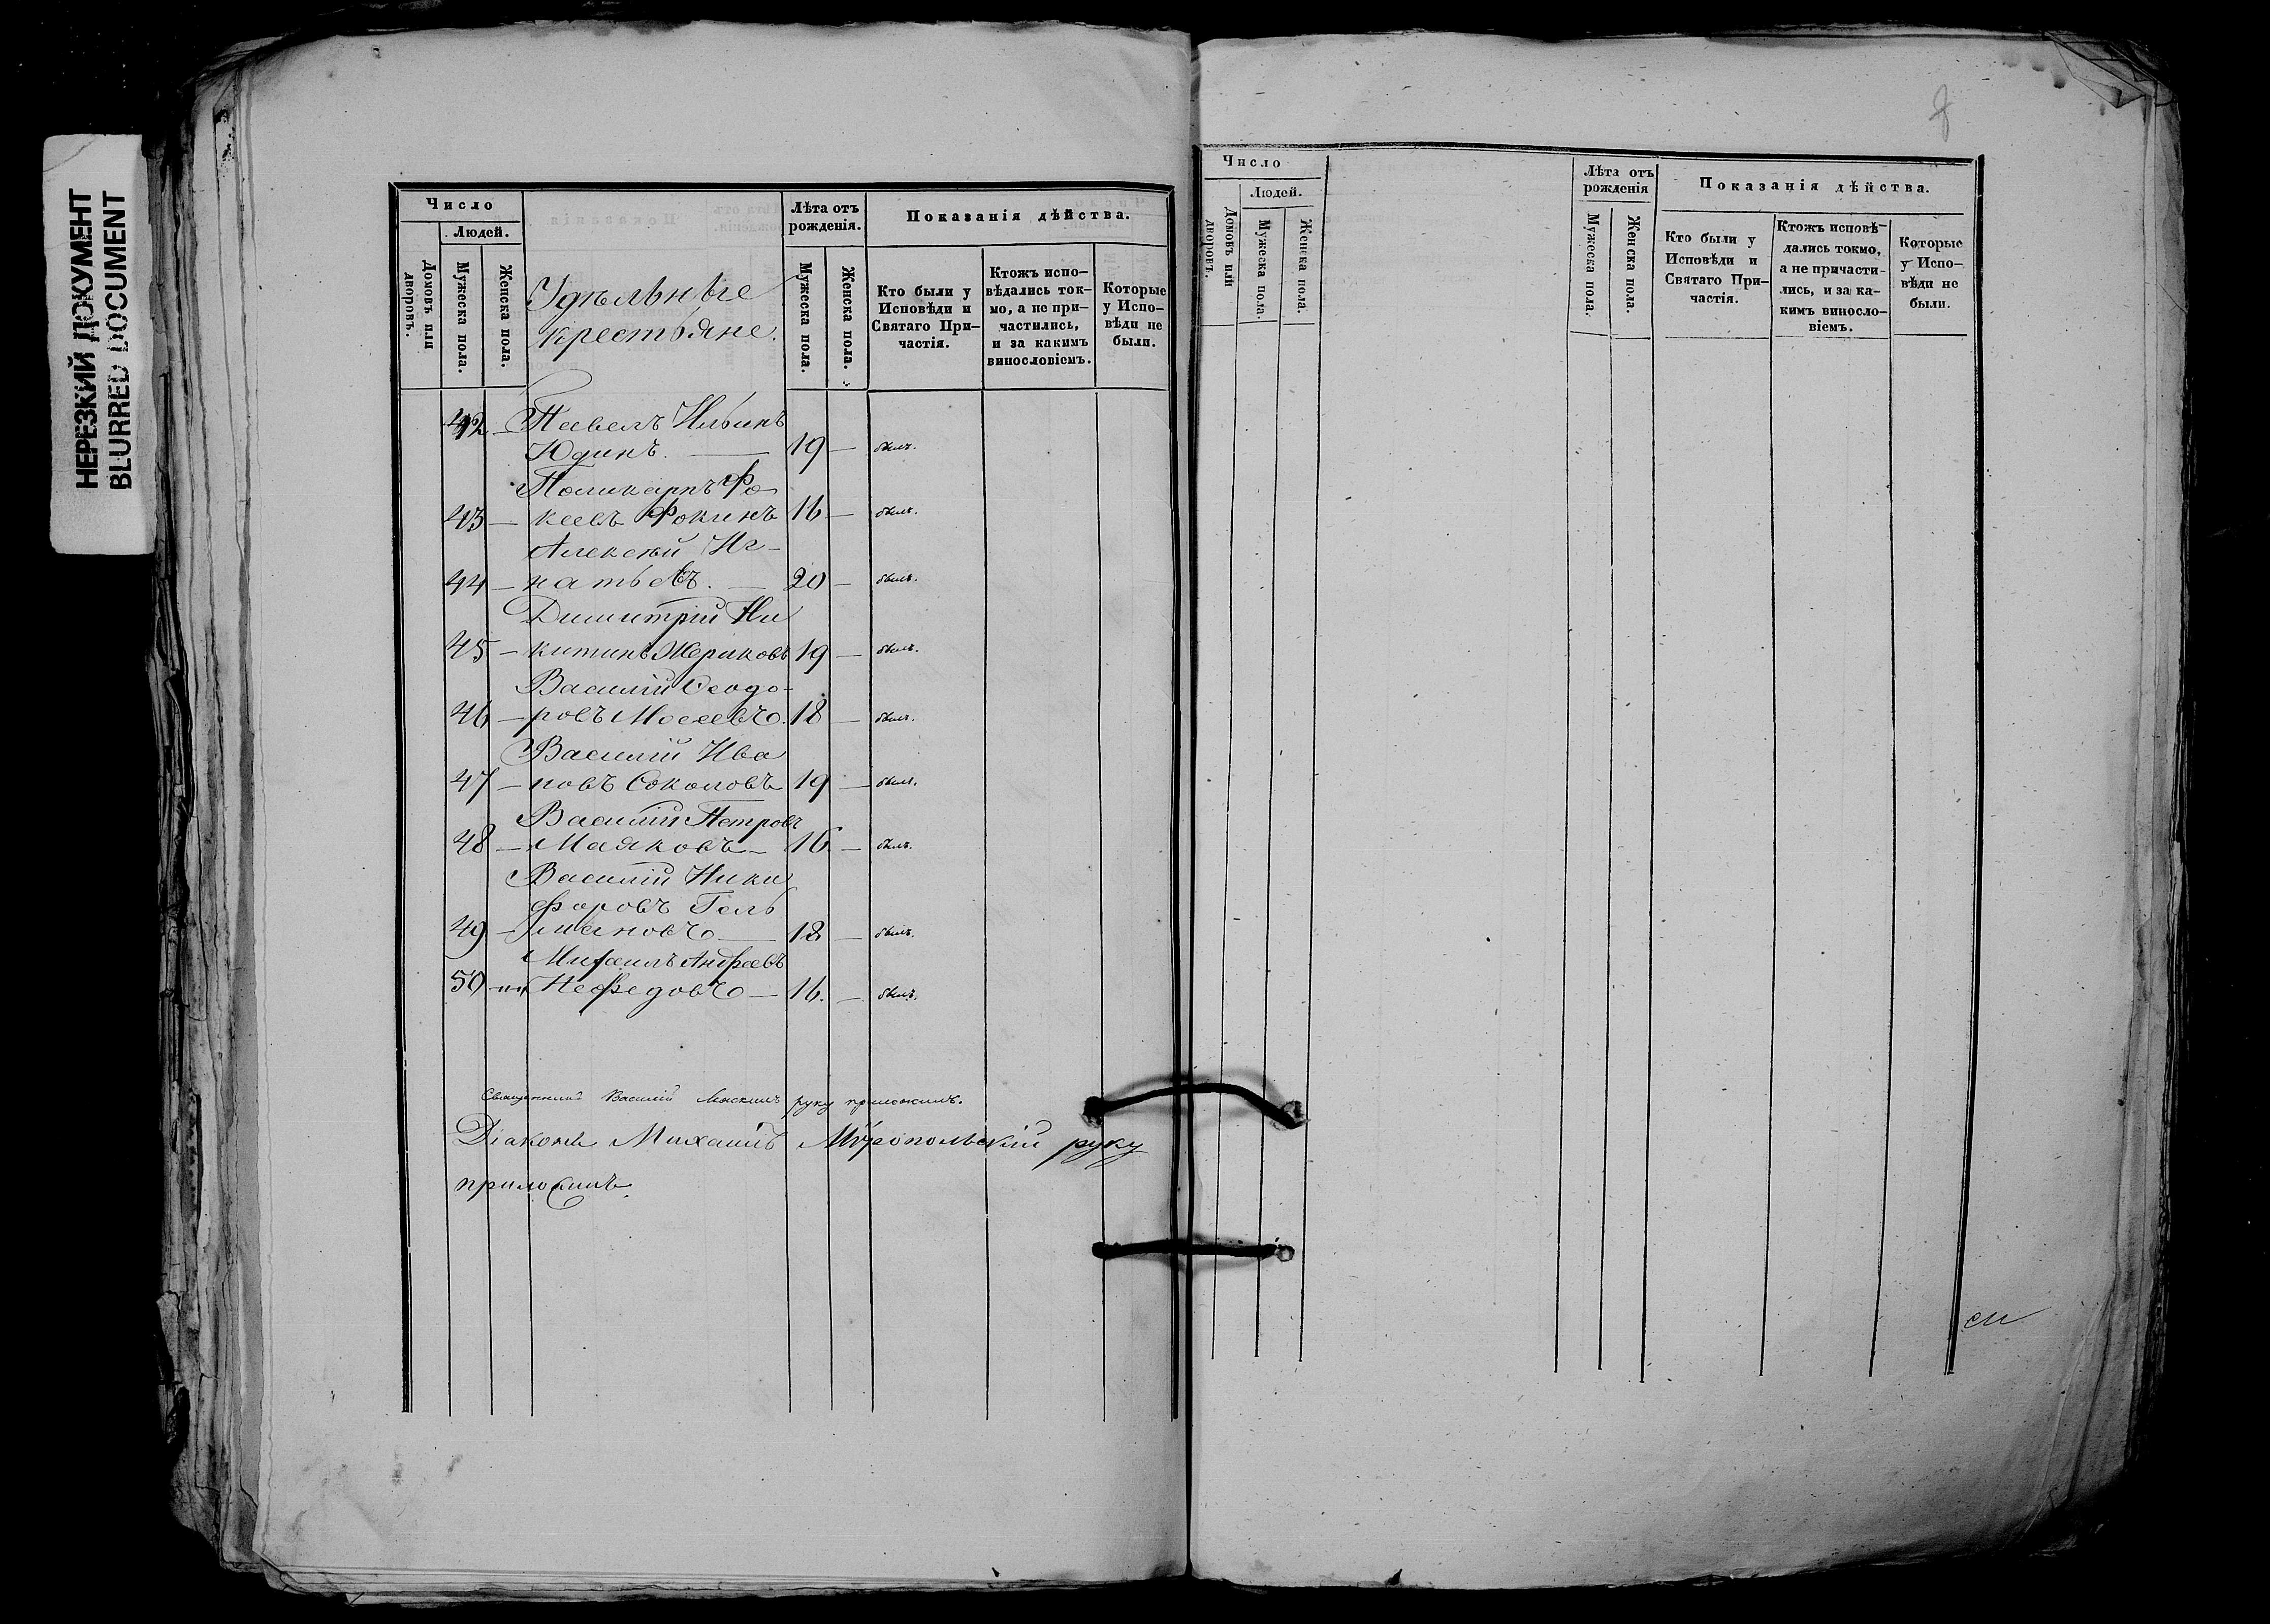 НЕРЕЗКИЙ ДОКУМЕНТ
BLURRED DOCUMENT
Число
Людей.
Домовъ или дворовъ.
Мужеска пола.
Женска пола.
Удѣльные
крестьяне.
Лѣта отъ
рожденія.
Мужеска пола.
Женска пола.
Показанія дѣйства.
Кто были у
Исповѣди и
Святаго При-
частія.
Ктожъ испо-
вѣдались ток-
мо, а не при-
частились,
и за какимъ
винословіемъ.
Которые
у Испо-
вѣди не
были.
42 — Павелъ Ильинъ
Юдинъ. — 19 — былъ.
Поликарпъ Фо
43 — каевъ Фокинъ 16 — былъ.
Алексѣй Иг-
44 — натьевъ. — 20 — былъ.
Димитрій Ни
45 — китинъ Жериковъ 19 — былъ.
Василій Ѳеодо-
46 — ровъ Мосеевъ. 18 — былъ.
Василій Ива
47 — новъ Соколовъ 19 — былъ.
Василій Петровъ
48 — Маяковъ — 16. — былъ.
Василій Ники
форовъ Гель
49 — мановъ — 18 — былъ.
Михаилъ Андреевъ
50 — Нефедовъ — 16. — былъ.
Священникъ Василій руку приложилъ.
Діаконъ Михаилъ руку
приложилъ.
8
Число
Людей.
Домовъ или дворовъ.
Мужеска пола.
Женска пола.
Лѣта отъ
рожденія
Мужеска пола.
Женска пола.
Показанія дѣйства.
Кто были у
Исповѣди и
Святаго При-
частія.
Ктожъ исповѣ-
дались токмо,
а не причасти-
лись, и за ка-
кимъ виносло-
віемъ.
Которые
у Испо-
вѣди не
были.